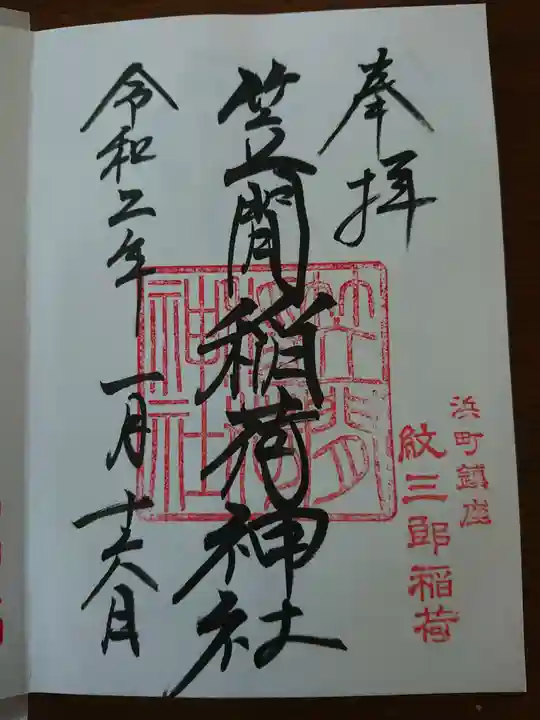 奉拝
浜町鎮座
紋三郎稲荷
笠間稲荷神社
笠間稲荷神社
令和二年 一月 十六日